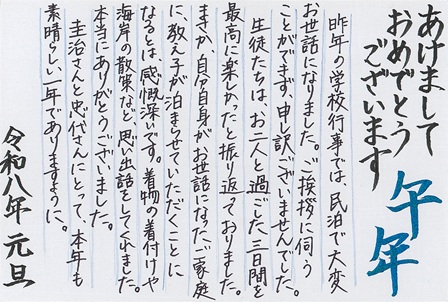 あけまして
おめでとう
ございます
午年
昨年の学校行事では、民泊で大変
お世話になりました。ご挨拶に伺う
ことができず、申し訳ございませんでした。
生徒たちは、お二人と過ごした三日間を
最高に楽しかったと振り返っておりました。
まさか、自分自身がお世話になったご家庭
に、教え子が泊まらせていただくことに
なるとは、感慨深いです。着物の着付けや
海岸の散策など、思い出話をしてくれました。
本当にありがとうございました。
圭治さんと忠代さんにとって、本年も
素晴らしい一年でありますように。
令和八年 元旦